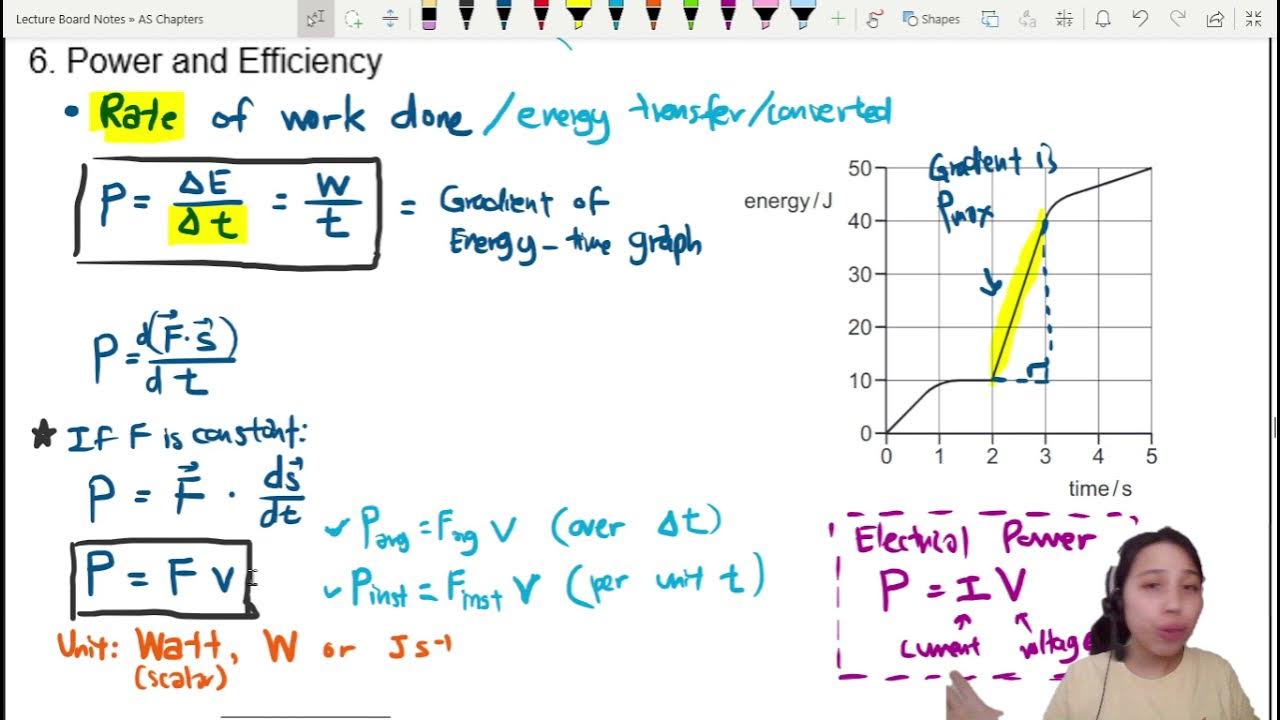 Lecture Board Notes » AS Chapters
Shapes
6. Power and Efficiency
• Rate of work done / energy transfer/converted
P = ΔE/Δt = W/t = Gradient of
Energy - time graph
P = d(F⃗·s⃗)/dt
★ If F is constant:
P = F⃗ · ds⃗/dt
P = F v
✓ Pavg = Favg v (over Δt)
✓ Pinst = Finst v (per unit t)
Unit: Watt, W or Js⁻¹
(scalar)
energy/J
Gradient is
Pmax
50
40
30
20
10
0
0 1 2 3 4 5
time/s
Electrical Power
P = I V
current voltage